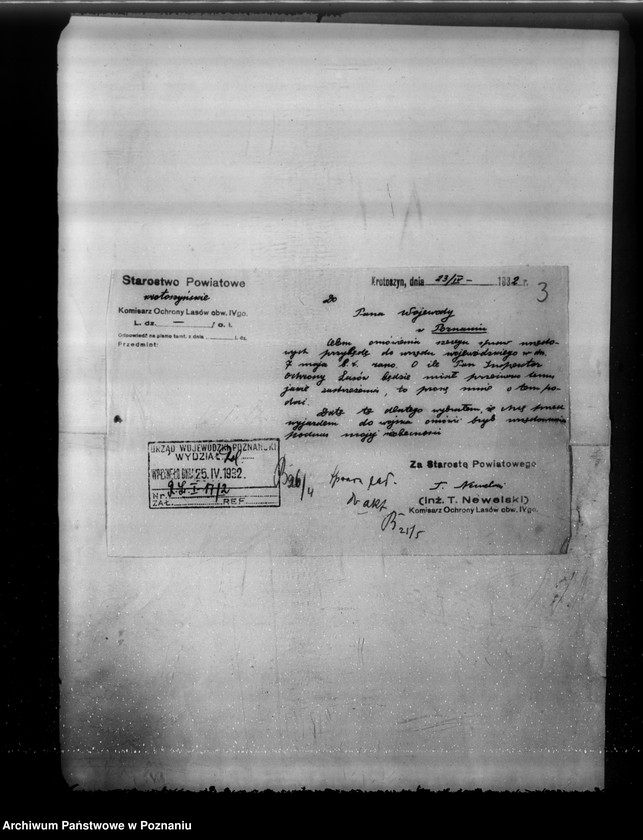 Starostwo Powiatowe
krotoszyńskie
Komisarz Ochrony Lasów obw. IVgo.
L. dz. — /o. l.
Odpowiedź na pismo tamt. z dnia L. dz.
Przedmiot:
Krotoszyn, dnia 23/IV – 1932 r.
3
Do
Pana Wojewody
w Poznaniu
Celem omówienia szeregu spraw urzędo-
wych przybędę do urzędu wojewódzkiego w dn.
7 maja b.r. rano. O ile Pan Inspektor
Ochrony Lasów będzie miał przeciwko temu
jakieś zastrzeżenia, to proszę mnie o tem po-
dać.
Datę tę dlatego wybrałem, iż chcę przed
wyjazdem do wojska omówić
podczas mojej nieobecności
Za Starostę Powiatowego
T. Newelski
(inż. T. Newelski)
Komisarz Ochrony Lasów obw. IVgo.
URZĄD WOJEWÓDZKI POZNAŃSKI
WYDZIAŁ
WPŁYNĘŁO DNIA 25.IV.1932
Nr.
ZAŁ. REF.
B 26/4
do akt
B 21/5
Archiwum Państwowe w Poznaniu